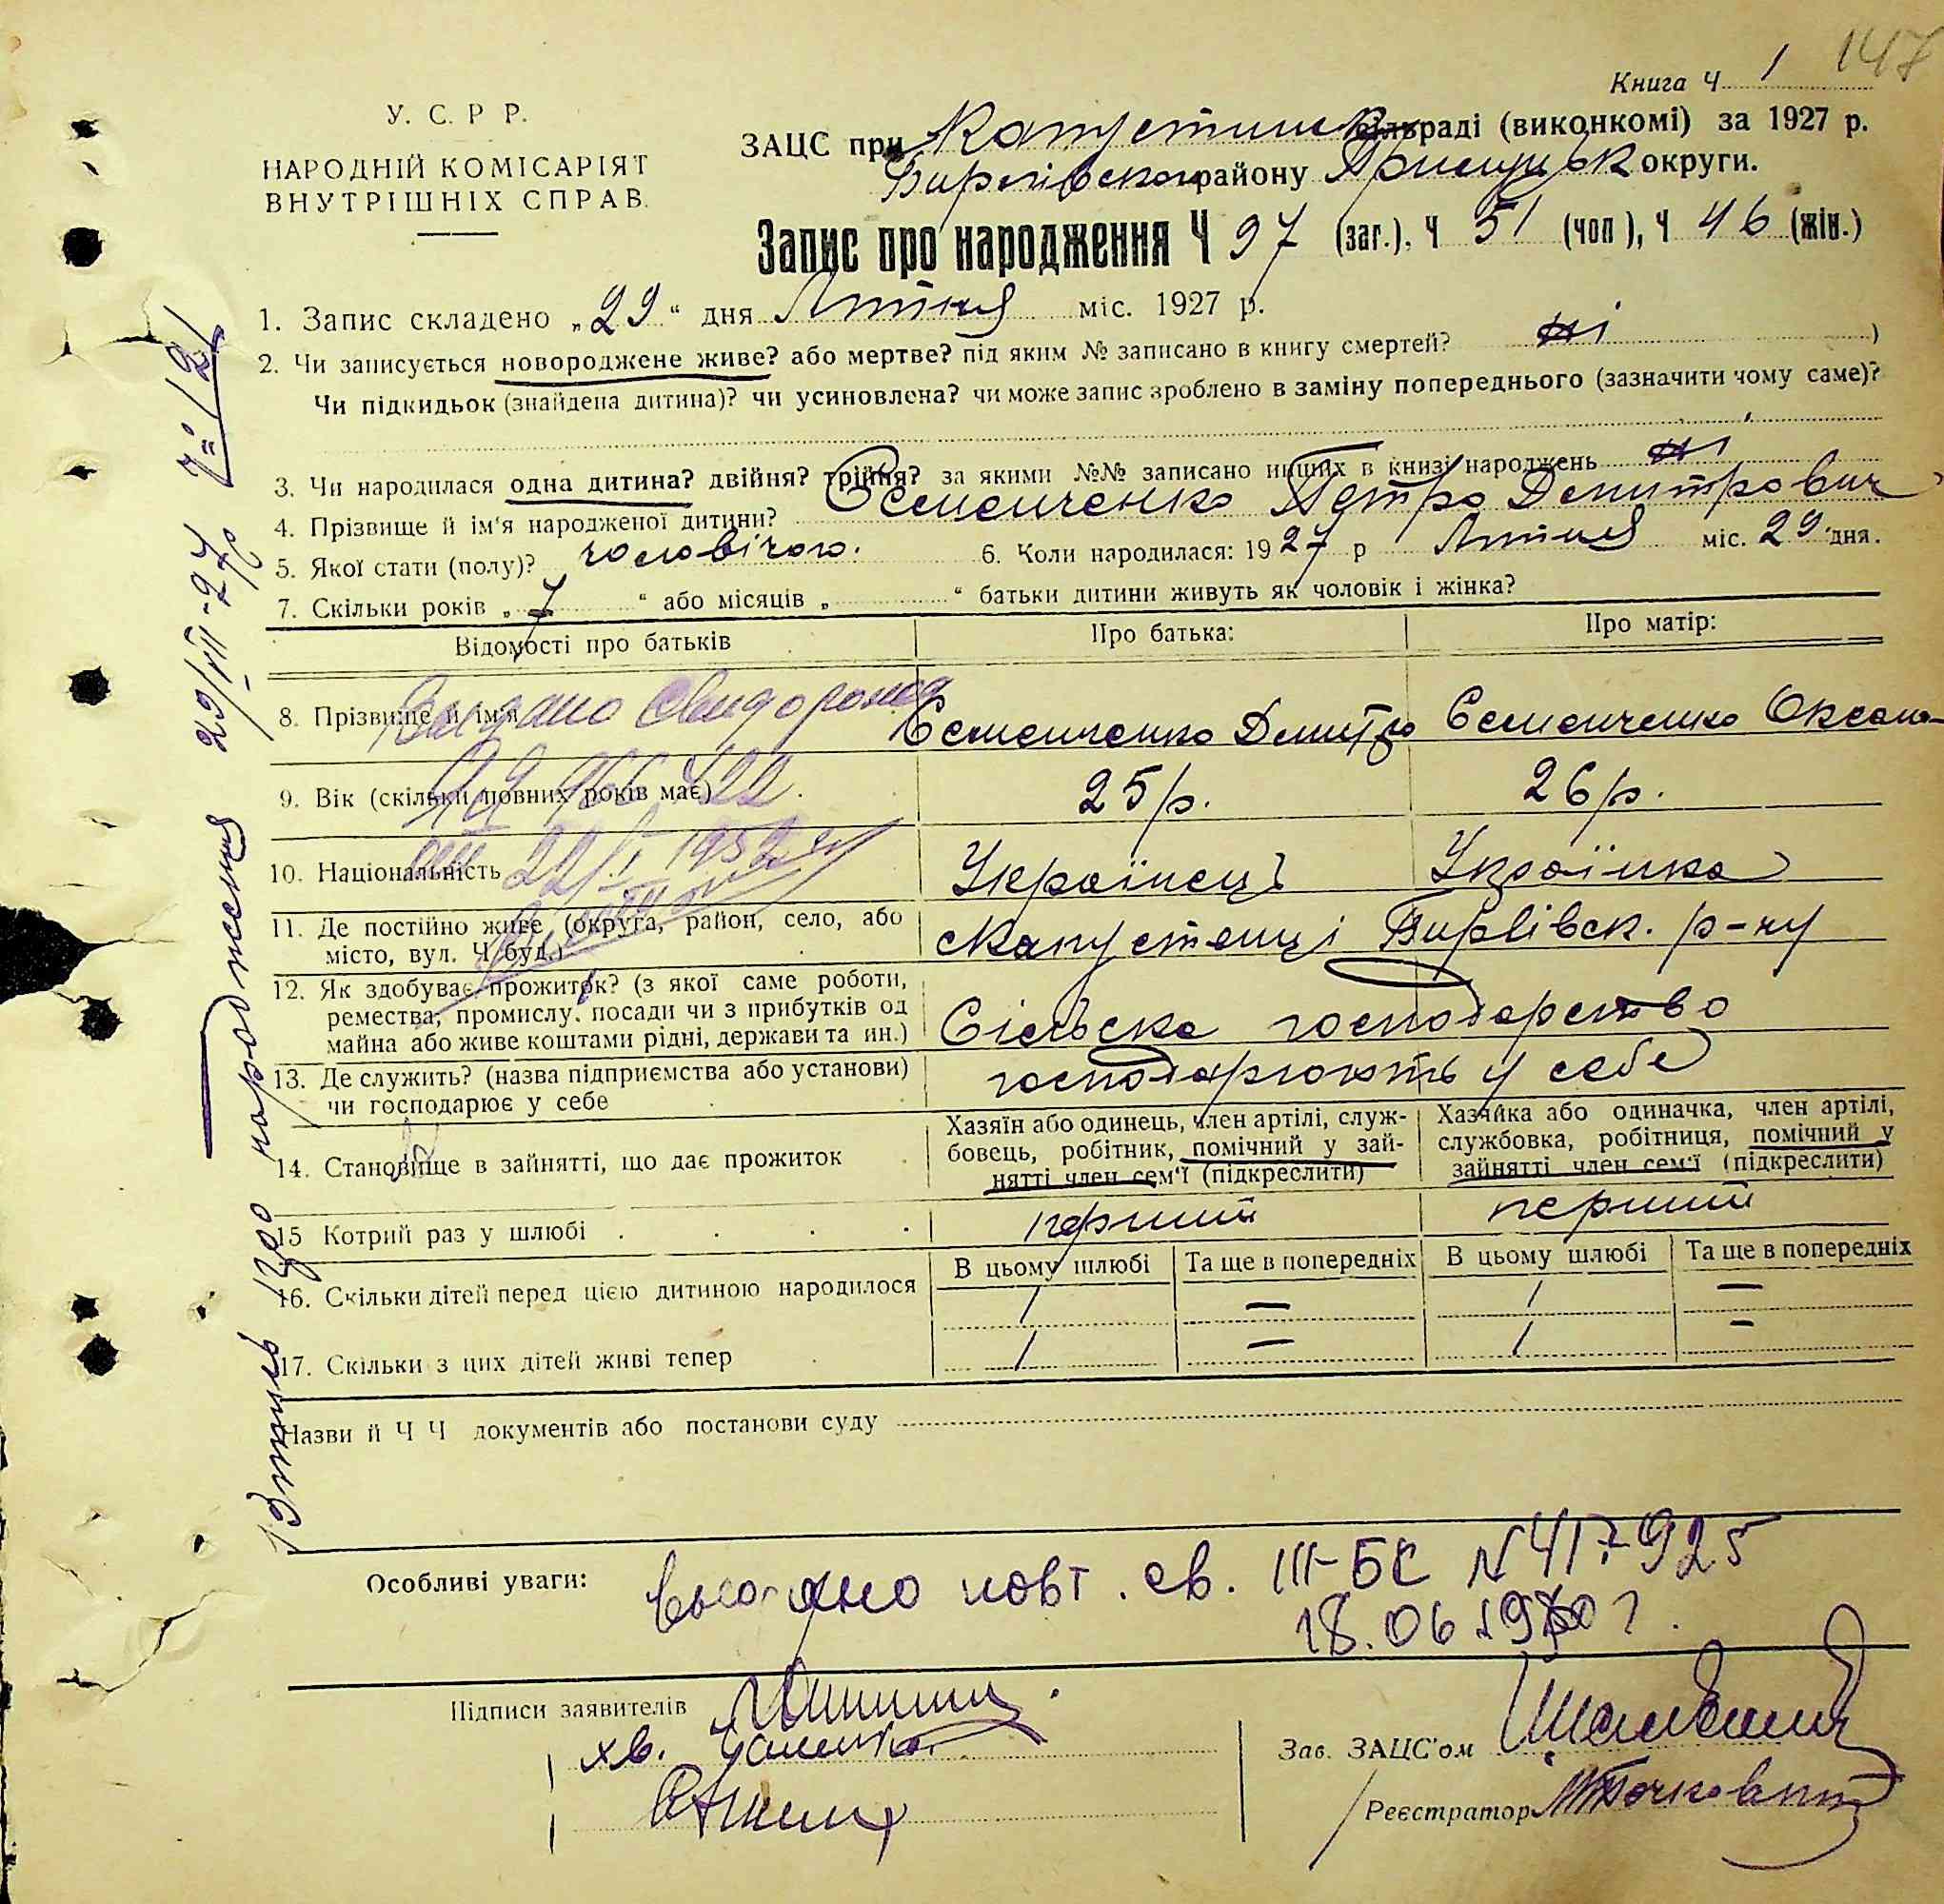 147
Книга Ч 1
У. С. Р Р.
НАРОДНІЙ КОМІСАРІЯТ
ВНУТРІШНІХ СПРАВ.
ЗАЦС при сільраді (виконкомі) за 1927 р.
району округи.
Запис про народження Ч 97 (заг.), Ч 51 (чол), Ч 46 (жін.)
1. Запис складено „29“ дня Липня міс. 1927 р.
2. Чи записується новороджене живе? або мертве? під яким № записано в книгу смертей? ні )
Чи підкидьок (знайдена дитина)? чи усиновлена? чи може запис зроблено в заміну попереднього (зазначити чому саме)?
3. Чи народилася одна дитина? двійня? трійня? за якими №№ записано инших в книзі народжень ні
4. Прізвище й ім'я народженої дитини? Семенченко Петро Дмитрович
5. Якої стати (полу)? чоловічого. 6. Коли народилася: 1927 р Липня міс. 29 дня.
7. Скільки років „7“ або місяців „ “ батьки дитини живуть як чоловік і жінка?
Відомості про батьків Про батька: Про матір:
8. Прізвище й ім'я Семенченко Дмитро Семенченко Оксана
9. Вік (скільки повних років має) 25 р. 26 р.
10. Національність Українець Українка
11. Де постійно живе (округа, район, село, або
місто, вул. Ч буд.) с Капустенці Бирлівск. р-ну
12. Як здобуває прожиток? (з якої саме роботи,
ремества, промислу, посади чи з прибутків од
майна або живе коштами рідні, держави та ин.) Сільське господарство
13. Де служить? (назва підприємства або установи)
чи господарює у себе господарюють у себе
14. Становище в зайнятті, що дає прожиток
Хазяїн або одинець, член артілі, служ-
бовець, робітник, помічний у зай-
нятті член сем'ї (підкреслити)
Хазяйка або одиначка, член артілі,
службовка, робітниця, помічний у
зайнятті член сем'ї (підкреслити)
15 Котрий раз у шлюбі перший перший
В цьому шлюбі Та ще в попередніх В цьому шлюбі Та ще в попередніх
16. Скільки дітей перед цією дитиною народилося 1 — 1 —
17. Скільки з цих дітей живі тепер 1 — 1 —
Назви й Ч Ч документів або постанови суду
Особливі уваги: повт. св. III-БК N 417925
18.06.1970 г.
Підписи заявителів
Зав. ЗАЦС'ом
Реєстратор
народження